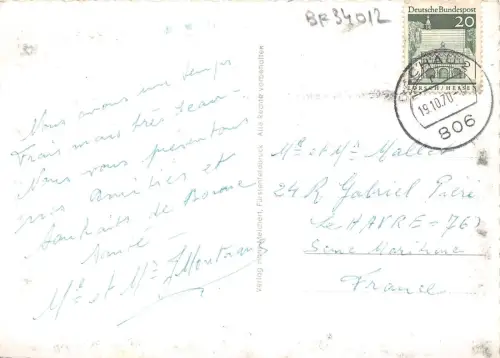 BF34012
Deutsche Bundespost
20
LORSCH / HESSEN
19.10.70
806
Nous avons un temps
Frais mais très beau
Nous vous présentons
nos Amitiés et
Souhaits de Bonne
santé
Mr et Me
Mr et Me Mallet
24 R Gabriel Péri
Le HAVRE - 76
Seine Maritime
France
Fürstenfeldbruck Alle Rechte vorbehalten